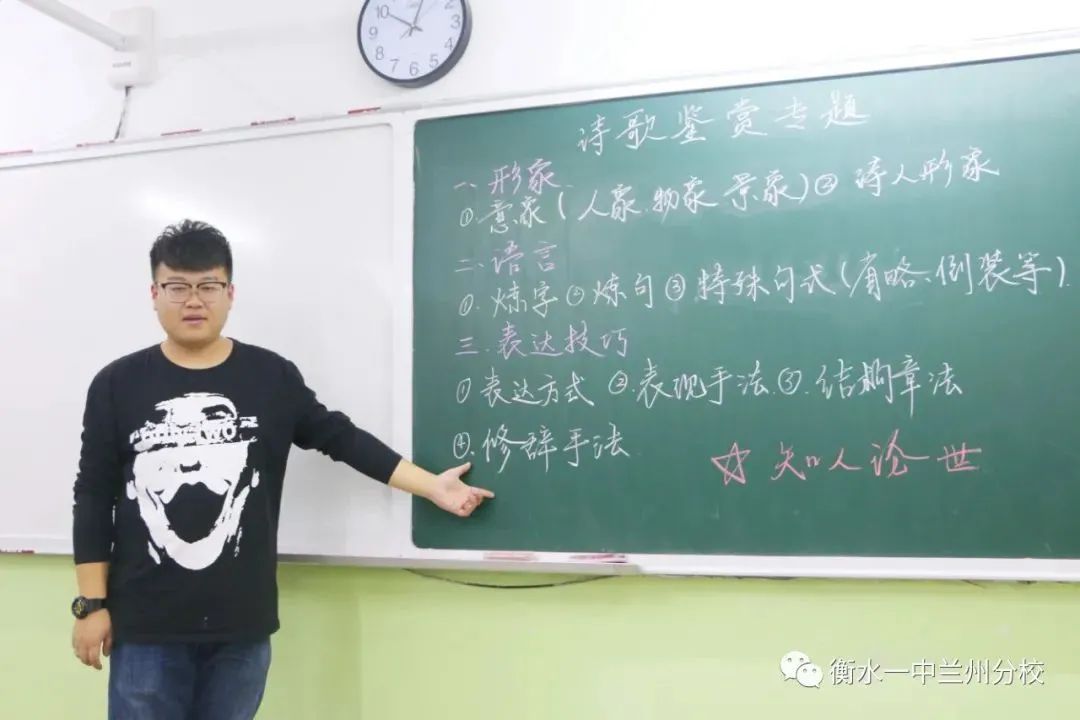 诗歌鉴赏专题
一、形象
①.意象(人象.物象.景象)② 诗人形象
二、语言
①.炼字②炼句③特殊句式(省略、倒装等).
三.表达技巧
①表达方式 ②.表现手法.③.结构章法
④.修辞手法
☆知人论世
10 2 3 9 4 8 7 6 5
衡水一中兰州分校